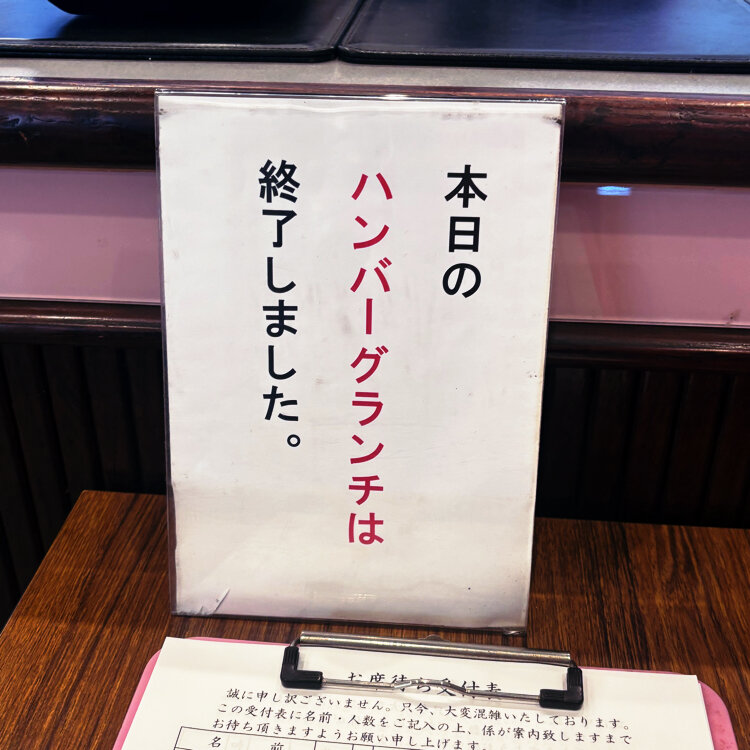 本日の
ハンバーグランチは
終了しました。
お席待ち受付表
誠に申し訳ございません。只今、大変混雑いたしております。
この受付表に名前・人数をご記入の上、係が案内致しますまで
お待ち頂きますようお願い申し上げます。
名 前